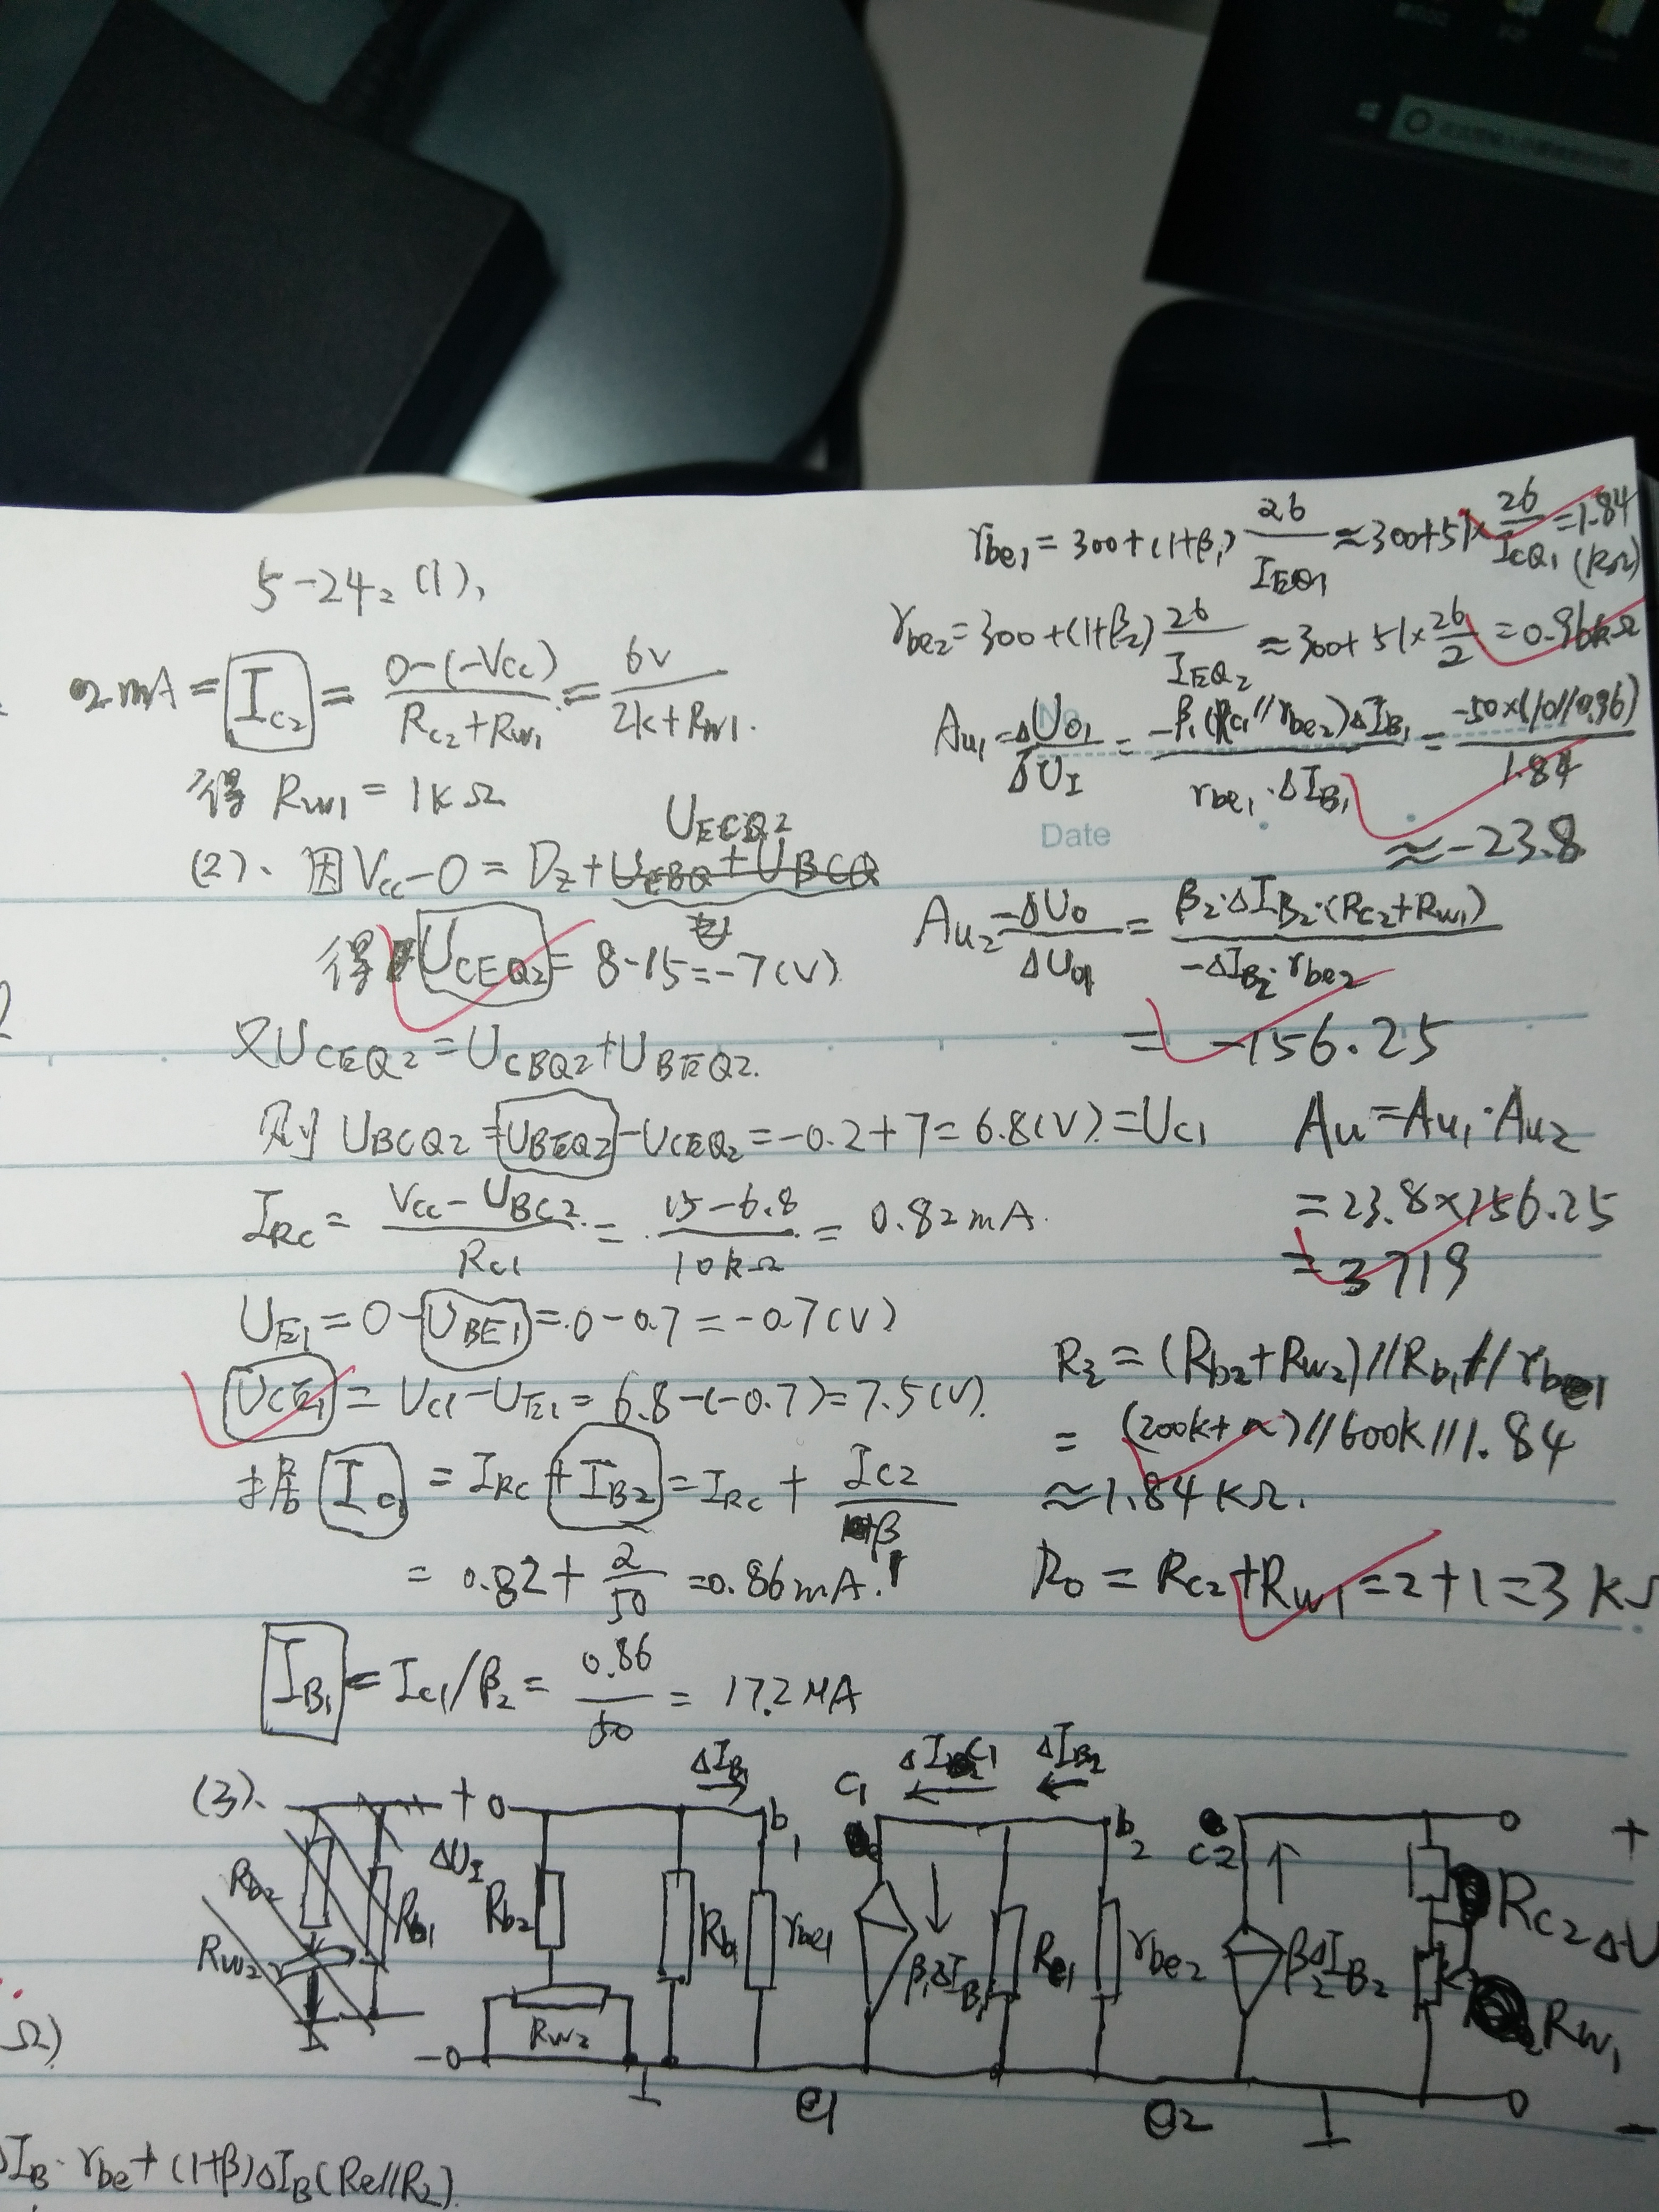 5-24₂ (1)、
2mA = I_C2 = (0-(-Vcc))/(R_C2+R_W1) = 6V/(2k+R_W1).
得 R_W1 = 1kΩ
U_ECQ2
(2)、因Vcc-0 = D_Z+U_EBQ+U_BCQ
得 U_CEQ2 = 8-15=-7(V)
又U_CEQ2=U_CBQ2+U_BEQ2.
则 U_BCQ2=U_BEQ2-U_CEQ2=-0.2+7=6.8(V).=U_C1
I_RC = (Vcc-U_BC2)/R_C1 = (15-6.8)/10kΩ = 0.82mA.
U_E1=0-U_BE1=0-0.7=-0.7(V)
U_CE1= V_C1-U_E1=6.8-(-0.7)=7.5(V).
据 I_C1 = I_RC+I_B2=I_RC + I_C2/β
= 0.82+2/50=0.86mA.
I_B1=I_C1/β₂=0.86/50=17.2μA
r_be1=300+(1+β₁)26/I_EQ1≈300+51×26/I_CQ1=1.84(kΩ)
r_be2=300+(1+β₂)26/I_EQ2≈300+51×26/2=0.96kΩ
No
A_u1=ΔU_O1/ΔU_I=-β₁(R_C1//r_be2)ΔI_B1/(r_be1·ΔI_B1)=-50×(10//0.96)/1.84
Date
≈-23.8
A_u2=ΔU_O/ΔU_O1=β₂·ΔI_B2·(R_C2+R_W1)/(-ΔI_B2·r_be2)
=-156.25
A_u=A_u1·A_u2
=23.8×156.25
=3719
R_i=(R_b2+R_W2)//R_b1//r_be1
=(200k+∝)//600k//1.84
≈1.84kΩ.
R_o=R_C2+R_W1=2+1=3k
(3)、
R_b2
R_W2
R_b1
+
ΔU_I
-
ΔI_B1
b₁
R_b2
R_b1
r_be1
R_W2
C₁
ΔI_C1
ΔI_B2
b₂
β₁ΔI_B1
R_e1
r_be2
C2
β₂ΔI_B2
R_C2
ΔU
R_W1
+
-
e1
e2
Ω)
ΔI_B·r_be+(1+β)ΔI_B(Re//R_L)